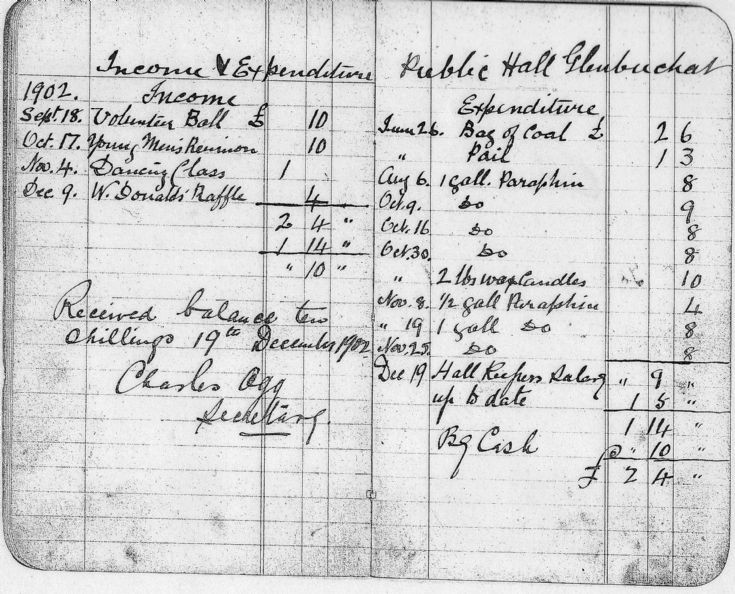 Income & Expenditure
1902. Income
Sept. 18. Volunteer Ball £ 10
Oct. 17. Young Mens Reunion 10
Nov. 4. Dancing Class 1
Dec. 9. W. Donalds Raffle 4
2 4 "
1 14 "
" 10 "
Received balance ten
shillings 19th December 1902
Charles Ogg
Secretary.
Public Hall Glenbuchat
Expenditure
June 26. Bag of Coal £ 2 6
" Pail 1 3
Aug 6. 1 gall. Paraphin 8
Oct. 9. Do 9
Oct. 16 Do 8
Oct. 30. Do 8
" 2 lbs wax Candles 10
Nov. 8. 1/2 gall Paraphin 4
" 19 1 gall Do 8
Nov. 25. Do 8
Dec 19 Hall Keepers Salary " 9 "
up to date 1 5 "
1 14 "
By Cash " 10 "
£ 2 4 "